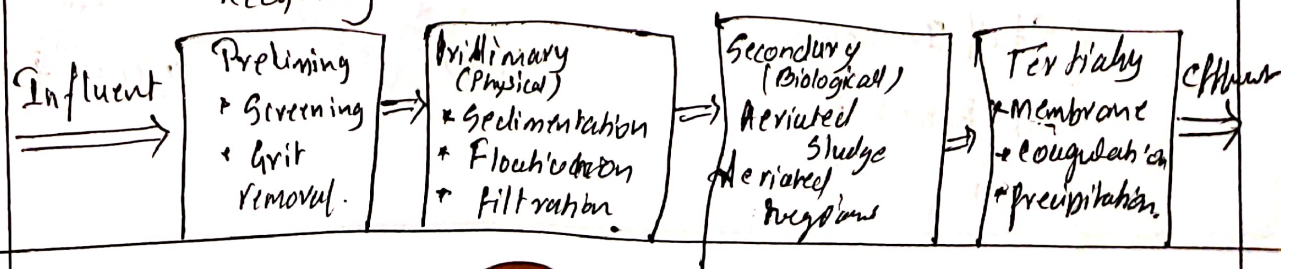 Influent
Preliming
* Screening
* Grit
removal.
Primimary
(Physical)
* Sedimentation
*
* Filtration.
Secondury
(Biological)
Aeriated
Sludge
Aeriated
Tertiahy
* Membrane
* Cougulation
* precipitation.
Effluent